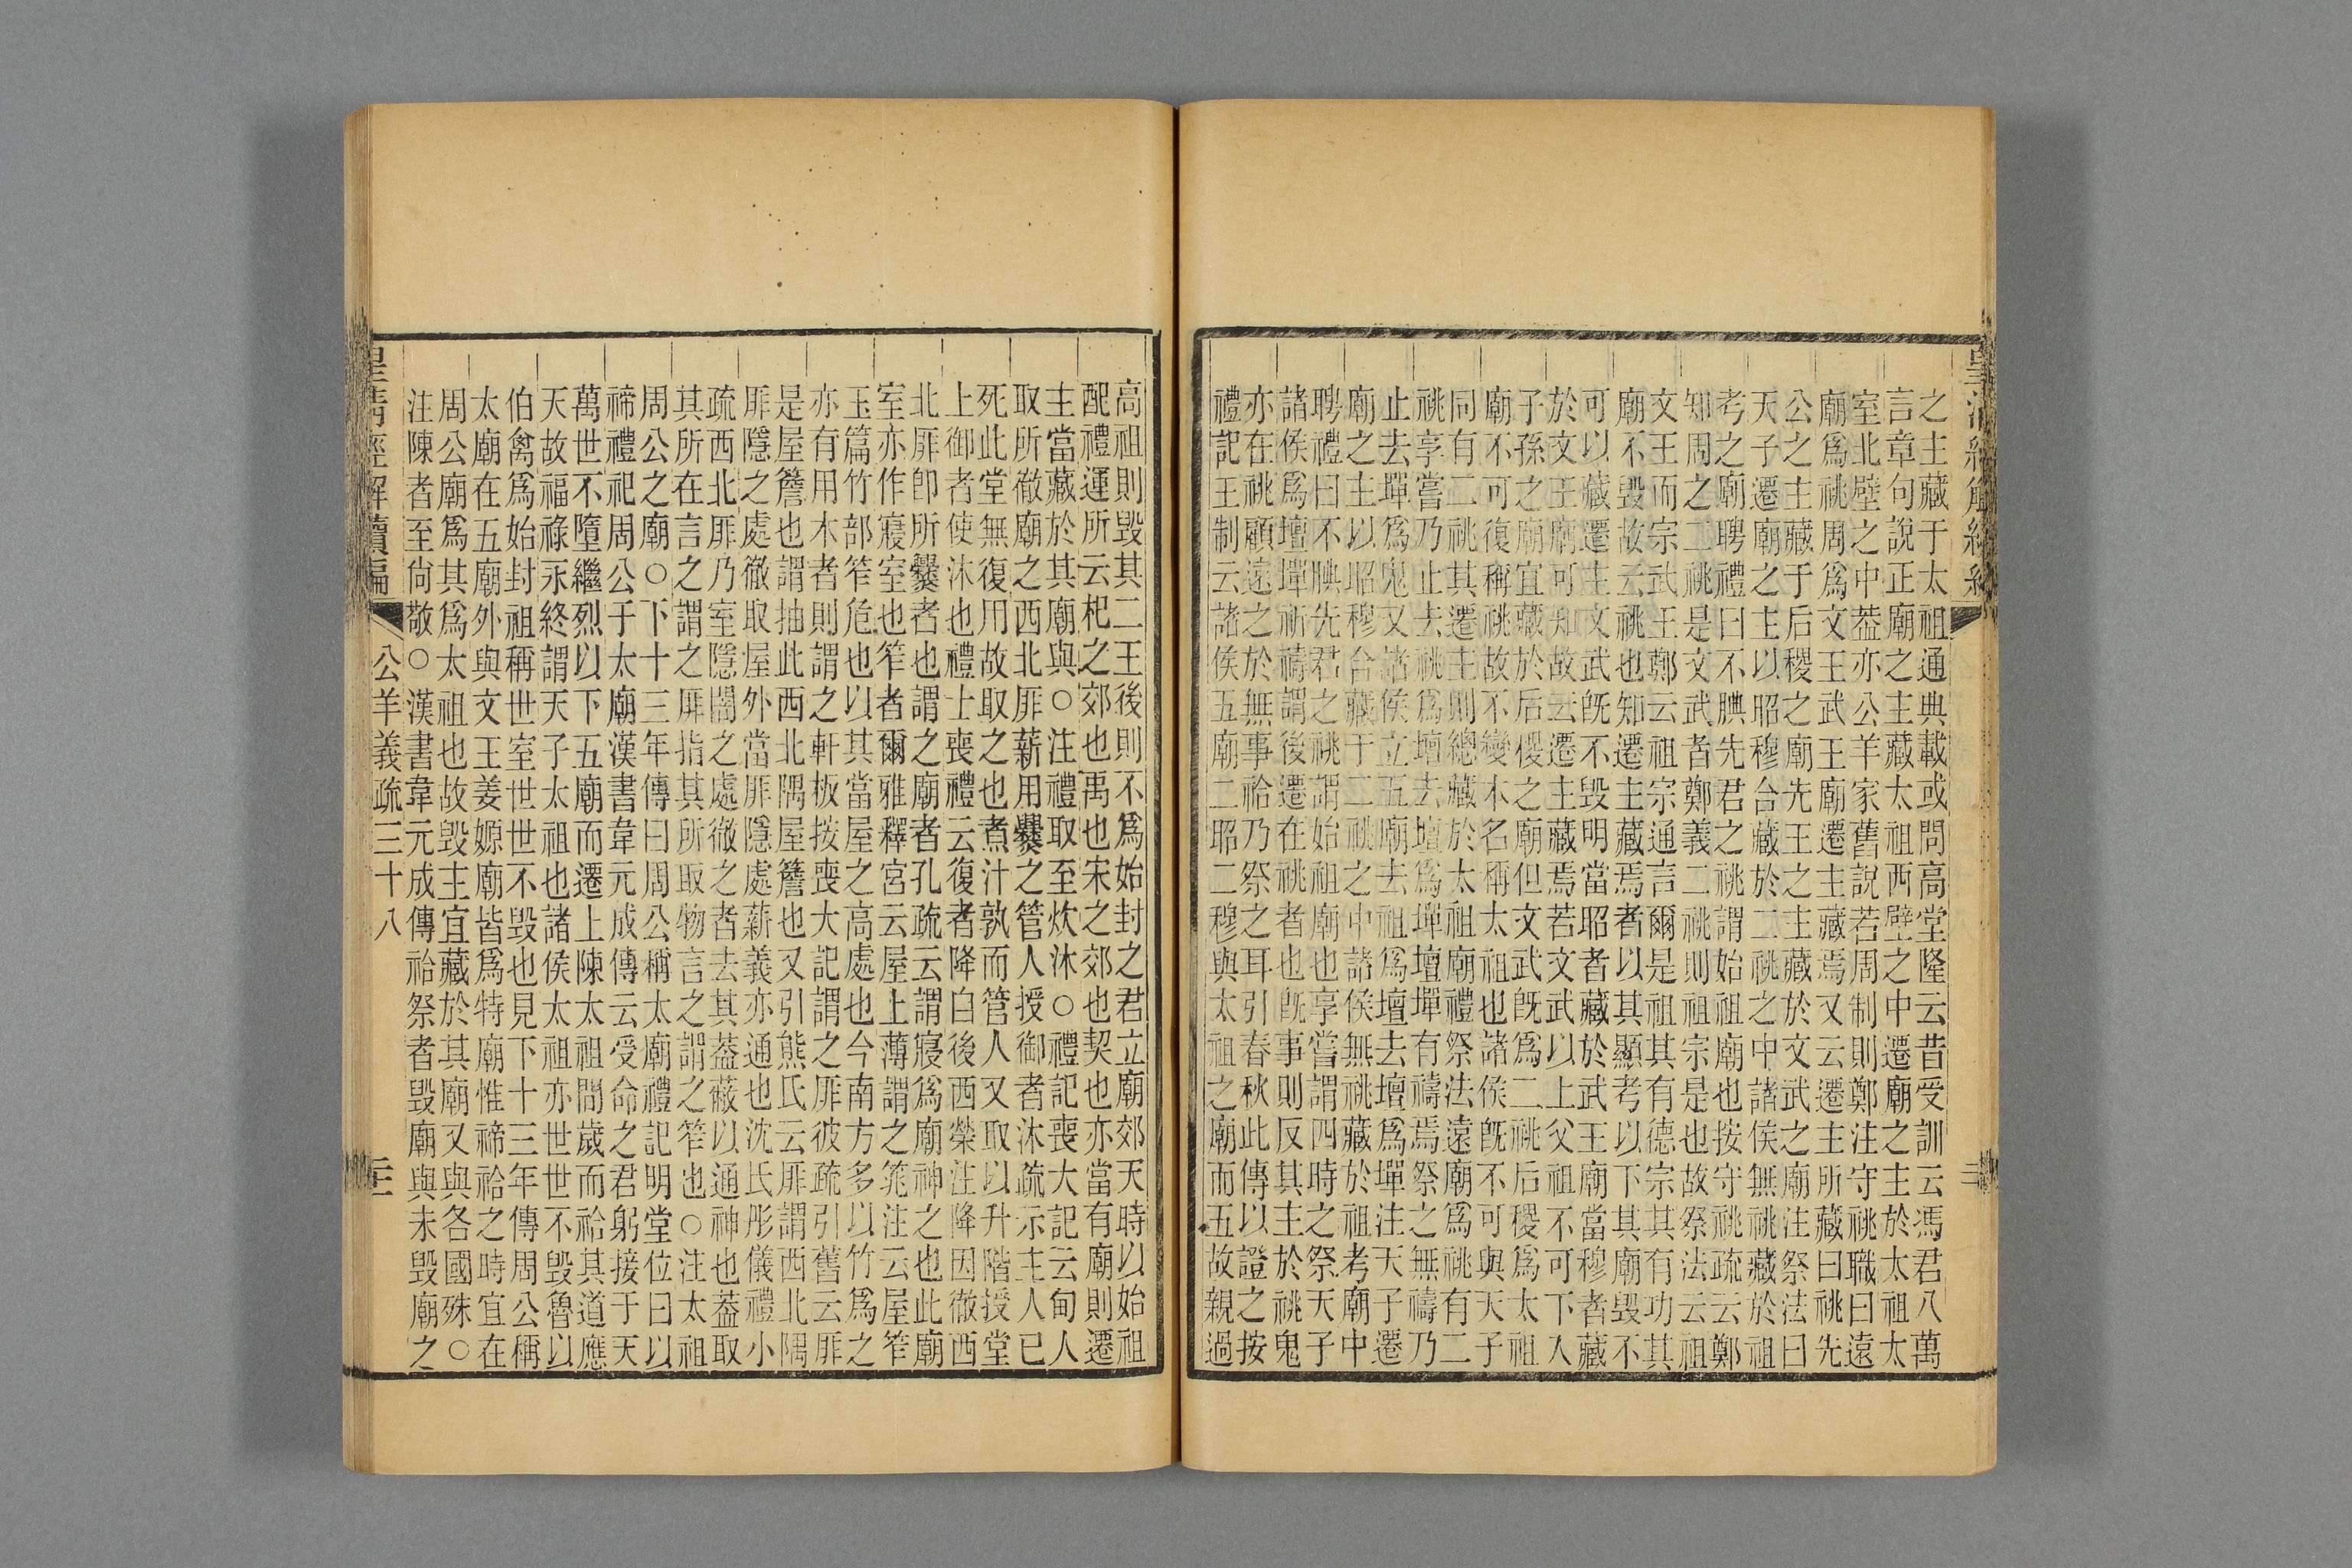 皇清經解續編
之主藏于太祖通典載或問高堂隆云昔受訓云馮君八萬
言章句說正廟之主藏太祖西壁之中遷廟之主於太祖太
室北壁之中葢亦公羊家舊說若周制則鄭注守祧職曰遠
廟爲祧周爲文王武王廟遷主藏焉又云遷主所藏曰祧先
公之主藏于后稷之廟先王之主藏於文武之廟注祭法曰
天子遷廟之主以昭穆合藏於二祧之中諸侯無祧藏於祖
考之廟聘禮曰不腆先君之祧謂始祖廟也按守祧疏云鄭
知周之二祧是文武者鄭義二祧則祖宗是也故祭法云祖
文王而宗武王鄭云祖宗通言爾是祖其有德宗其有功其
廟不毀故云祧也知遷主藏焉者以其顯考以下其廟毀不
可以藏遷主文武旣不毀明當昭者藏於武王廟當穆者藏
於文王廟可知故云遷主藏焉若文武以上父祖不可下入
子孫之廟宜藏於后稷之廟但文武旣爲二祧后稷爲太祖
廟不可復稱祧故不變本名稱太祖也諸侯旣不可與天子
同有二祧其遷主則總藏於太祖廟禮祭法遠廟爲祧有二
祧享嘗乃止去祧爲壇去壇爲墠壇墠有禱焉祭之無禱乃
止去墠爲鬼又諸侯立五廟去祖爲壇去壇爲墠注天子遷
廟之主以昭穆合藏于二祧之中諸侯無祧藏於祖考廟中
聘禮曰不腆先君之祧謂始祖廟也享嘗謂四時之祭天子
諸侯爲壇墠祈禱謂後遷在祧者也旣事則反其主於祧鬼
亦在祧顧遠之於無事祫乃祭之耳引春秋此傳以證之按
禮記王制云諸侯五廟二昭二穆與太祖之廟而五故親過
高祖則毀其二王後則不爲始封之君立廟郊天時以始祖
配禮運所云杞之郊也禹也宋之郊也契也亦當有廟則遷
主當藏於其廟與○注禮取至炊沐○禮記喪大記云甸人
取所徹廟之西北厞薪用爨之管人授御者沐疏示主人已
死此堂無復用故取之也煮汁孰而管人又取以升階授堂
上御者使沐也禮士喪禮云復者降自後西榮注降因徹西
北厞卽所爨者也謂之廟者孔疏云謂寢爲廟神之也此廟
室亦作寢室也笮者爾雅釋宮云屋上薄謂之筄注云屋笮
玉篇竹部笮危也以其當屋之高處也今南方多以竹爲之
亦有用木者則謂之軒板按喪大記謂之厞彼疏引舊云厞
是屋簷也謂抽此西北隅屋簷也又引熊氏云厞謂西北隅
厞隱之處徹取屋外當厞隱處薪義亦通也沈氏彤儀禮小
疏西北厞乃室隱闇之處徹之者去其葢蔽以通神也葢取
其所在言之謂之厞指其所取物言之謂之笮也○注太祖
周公之廟○下十三年傳曰周公稱太廟禮記明堂位曰以
禘禮祀周公于太廟漢書韋元成傳云受命之君躬接于天
萬世不墮繼烈以下五廟而遷上陳太祖間歲而祫其道應
天故福祿永終謂天子太祖也諸侯太祖亦世世不毀魯以
伯禽爲始封祖稱世室世世不毀也見下十三年傳周公稱
太廟在五廟外與文王姜嫄廟皆爲特廟惟禘祫之時宜在
周公廟爲其爲太祖也故毀主宜藏於其廟又與各國殊○
注陳者至尙敬○漢書韋元成傳祫祭者毀廟與未毀廟之
皇清經解續編
公羊義疏三十八